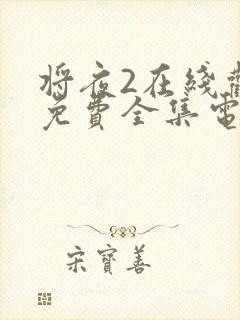 将夜2在綫觀
免費全集電
宋寶善